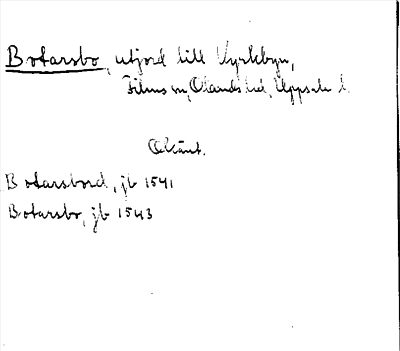 Botarsbo, utjord till Kyrkbyn,
Films sn, Olands hd, Uppsala l.
Okänt.
Botarsbord, jb 1541
Botarsbo, jb 1543